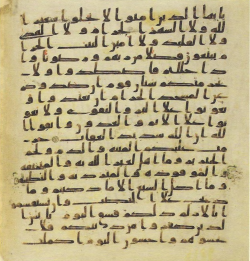 يايها الذين امنوا لا تحلوا شعير ا
لله ولا الشهر الحرام ولا الهد
ي ولا القليد ولا امين البيت الحرا
م يبتغون فضلا من ربهم ورضونا وا
ذا حللتم فاصطدوا ولا
يجرمنكم شنان قوم ان صدوكم
عن المسجد الحرام ان تعتدوا وتعا
ونوا علي البر والتقوي ولا تعو
نوا علي الاثم والعدون واتقوا ا
لله ان الله شديد العقاب
حرمت عليكم الميته والدم ولحم
الخنزير وما اهل لغير الله به والمنخنقه
والموقوذه والمترديه والنطيحه
وما اكل السبع الا ما ذكيتم وما
ذبح علي النصب وان تستقسموا
بالازلم ذلكم فسق اليوم يئس ا
لذين كفروا من دينكم فلا تخ
شوهم واخشون اليوم اكملت